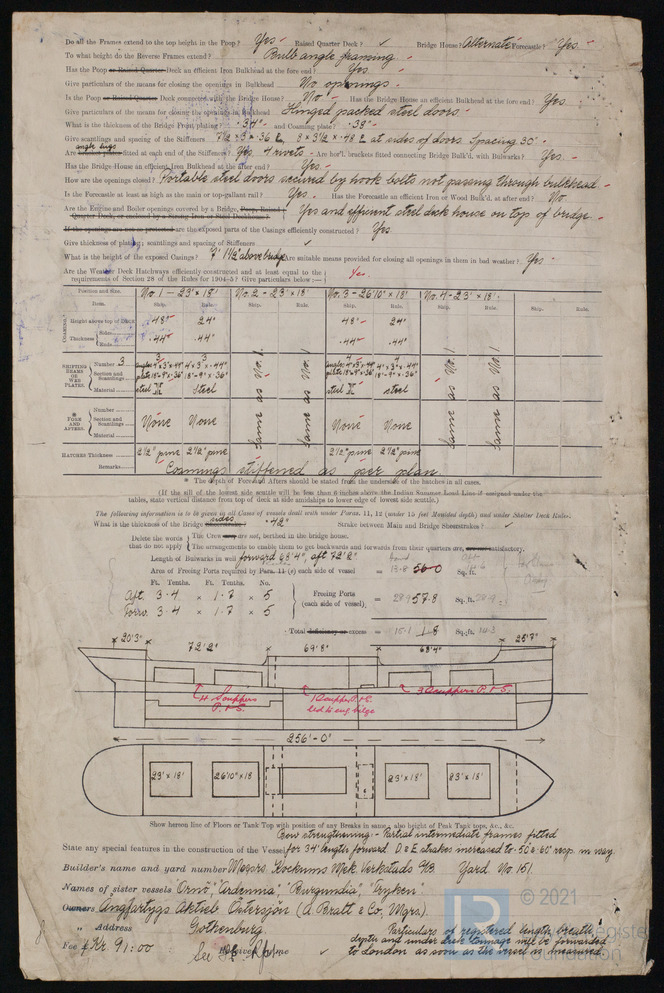 Do all the Frames extend to the top height in the Poop? Yes Raised Quarter Deck? ✓ Bridge House? Alternate Forecastle? Yes.
To what height do the Reverse Frames extend? Bulb angle framing
Has the Poop or Raised Quarter Deck an efficient Iron Bulkhead at the fore end? Yes
Give particulars of the means for closing the openings in Bulkhead No openings.
Is the Poop or Raised Quarter Deck connected with the Bridge House? No Has the Bridge House an efficient Bulkhead at the fore end? Yes
Give particulars of the means for closing the openings in Bulkhead Hinged packed steel doors
What is the thickness of the Bridge Front plating? .34" and Coaming plate? .38"
Give scantlings and spacing of the Stiffeners 7½ × 3 × .36 8 × 3½ × .48 at sides of doors. Spacing 30"
Are angle lugs fitted at each end of the Stiffeners? Yes 4 rivets Are hor'l. brackets fitted connecting Bridge Bulk'd. with Bulwarks? Yes
Has the Bridge House an efficient Iron Bulkhead at the after end? Yes
How are the openings closed? Portable steel doors secured by hook bolts not passing through bulkhead
Is the Forecastle at least as high as the main or top-gallant rail? Yes. Has the Forecastle an efficient Iron or Wood Bulk'd. at after end? No.
Are the Engine and Boiler openings covered by a Bridge, Poop, Raised Quarter Deck, or inclosed by a Strong Iron or Steel Deckhouse? Yes and efficient steel deck house on top of bridge
If the openings are not so protected are the exposed parts of the Casings efficiently constructed? Yes
Give thickness of plating, scantlings and spacing of Stiffeners ✓
What is the height of the exposed Casings? 7' 1½" above bridge Are suitable means provided for closing all openings in them in bad weather? Yes
Are the Weather Deck Hatchways efficiently constructed and at least equal to the requirements of Section 28 of the Rules for 1904-5? Give particulars below:— Yes.
Position and Size. No. 1 – 23' × 18' No. 2 – 23' × 18' No. 3 – 26'10" × 18' No. 4 – 23' × 18'
Item. Ship. Rule. Ship. Rule. Ship. Rule. Ship. Rule. Ship. Rule.
COAMING. Height above top of Deck 48" 24" 48" 24"
Thickness Sides .44" .44" .44" .44"
SHIFTING BEAMS OR WEB PLATES. Number 3 3 3 4 4
Section and Scantlings angles 4"×3"×.44" plate 18"-9"×.36" 4"×3"×.44" 18"-9"×.36" angles 4"×3"×.44" plate 18"-9"×.36" 4"×3"×.44" 18"-9"×.36"
Material steel Steel steel steel
Same as No. 1. Same as No. 1 Same as No. 1. Same as No. 1
* FORE AND AFTERS. Number
Section and Scantlings None None None None
Material
HATCHES Thickness 2½" pine 2½" pine 2½" pine 2½" pine
Remarks Coamings stiffened as per plan
* The depth of Fore and Afters should be stated from the underside of the hatches in all cases.
(If the sill of the lowest side scuttle will be less than 6 inches above the Indian Summer Load Line if assigned under the
tables, state vertical distance from top of deck at side amidships to lower edge of lowest side scuttle.)
The following information is to be given in all Cases of vessels dealt with under Paras. 11, 12 (under 15 feet Moulded depth) and under Shelter Deck Rules.
What is the thickness of the Bridge sides .42" Strake between Main and Bridge Sheerstrakes? ✓
Delete the words that do not apply The Crew are not, berthed in the bridge house.
The arrangements to enable them to get backwards and forwards from their quarters are, satisfactory.
Length of Bulwarks in well forward 68'4", aft 72'2"
Area of Freeing Ports required by Para. 11 (e) each side of vessel = 13.8 56.0 Sq. ft.
Ft. Tenths. Ft. Tenths. No.
Aft 3.4 × 1.7 × 5
Forw. 3.4 × 1.7 × 5
Freeing Ports (each side of vessel) = 28.9 57.8 Sq. ft. 28.9
Total deficiency or excess = 15.1 1.8 Sq. ft. 14.3
20'3" 72'2" 69'8" 68'4" 25'7"
4 Scuppers P. & S.
1 Scupper P. & S. led to eng. bilge
3 Scuppers P. & S.
256'-0"
23'×18' 26'10"×18' 23'×18' 23'×18'
Show hereon line of Floors or Tank Top with position of any Breaks in same; also height of Peak Tank tops, &c., &c.
Bow strengthening:- Partial intermediate frames fitted
State any special features in the construction of the Vessel for 34' length forward. D. & E. strakes increased to .50 & .60 resp. in way
Builder's name and yard number Messrs. Kockums Mek. Verkstads A/B. Yard No. 151.
Names of sister vessels "Ornö", "Ardennia", "Burgundia", "Gryken".
Owners Angfartygs Aktieb. Östersjön (A. Bratt & Co, Mgrs).
" Address Gothenburg
Particulars of registered length, breadth, depth and under deck tonnage will be forwarded to London as soon as the vessel is measured.
Fee £ Kr 91:00
Received by me
© 2021
Foundation